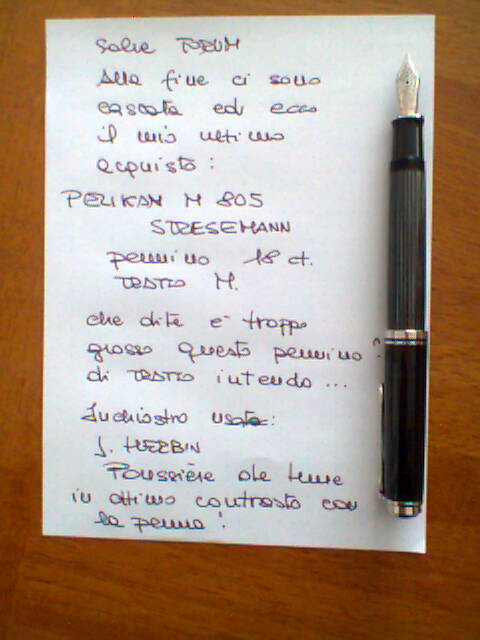 Salve FORUM
Alla fine ci sono
cascata ed ecco
il mio ultimo
acquisto:
PELIKAN M 805
STRESEMANN
pennino 18 ct.
TRATTO M.
che dite è troppo
grosso questo pennino?
di TRATTO intendo...
Inchiostro usato:
J. HERBIN
Poussière de lune
in ottimo contrasto con
la penna!